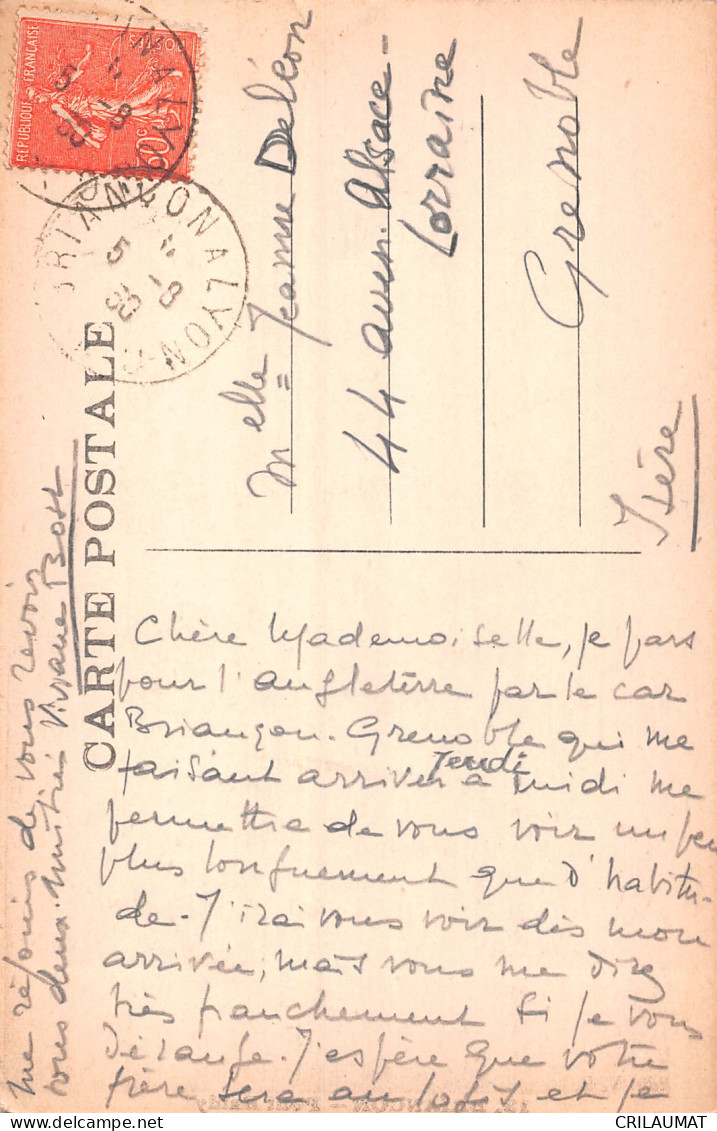 RÉPUBLIQUE FRANÇAISE
50c
BRIANÇON A LYON
5 - 8
CARTE POSTALE
Melle Jeanne Deléon
44 aven. Alsace-
Lorraine
Grenoble
Isère
Chère Mademoiselle, je pars
pour l'angleterre par le car
Briançon. Grenoble qui me
faisant arriver Jeudi à midi me
permettra de vous voir un peu
plus longuement que d'habitu-
de. J'irai vous voir dès mon
arrivée, mais vous me direz
très franchement si je vous
dérange. J'espère que votre
frère sera au logis et je
me réjouis de vous revoir
tous deux. Amitiés
CRILAUMAT